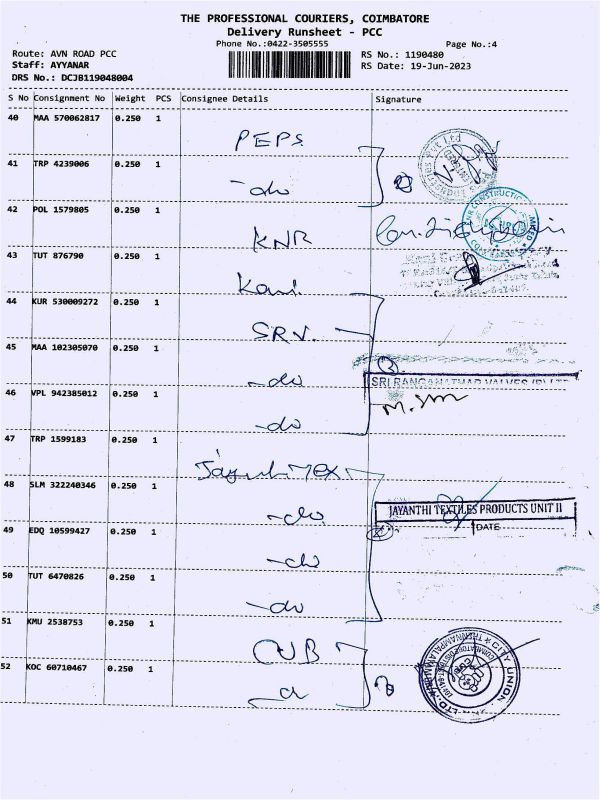 THE PROFESSIONAL COURIERS, COIMBATORE
Delivery Runsheet - PCC
Phone No.:0422-3505555 Page No.:4
Route: AVN ROAD PCC RS No.: 1190480
Staff: AYYANAR RS Date: 19-Jun-2023
DRS No.: DCJB119048004
S No Consignment No Weight PCS Consignee Details Signature
40 MAA 570062817 0.250 1 PEPS
41 TRP 4239006 0.250 1 -do
42 POL 1579805 0.250 1 KNR
43 TUT 876790 0.250 1
44 KUR 530009272 0.250 1 SRV.
45 MAA 102305070 0.250 1 -do
SRI RANGANATHAR VALVES (P) LTD
46 VPL 942385012 0.250 1 -do
47 TRP 1599183 0.250 1
48 SLM 322240346 0.250 1 -do
JAYANTHI TEXTILES PRODUCTS UNIT II
DATE
49 EDQ 10599427 0.250 1 -do
50 TUT 6470826 0.250 1 -do
51 KMU 2538753 0.250 1 CUB
52 KOC 60710467 0.250 1
CITY UNION